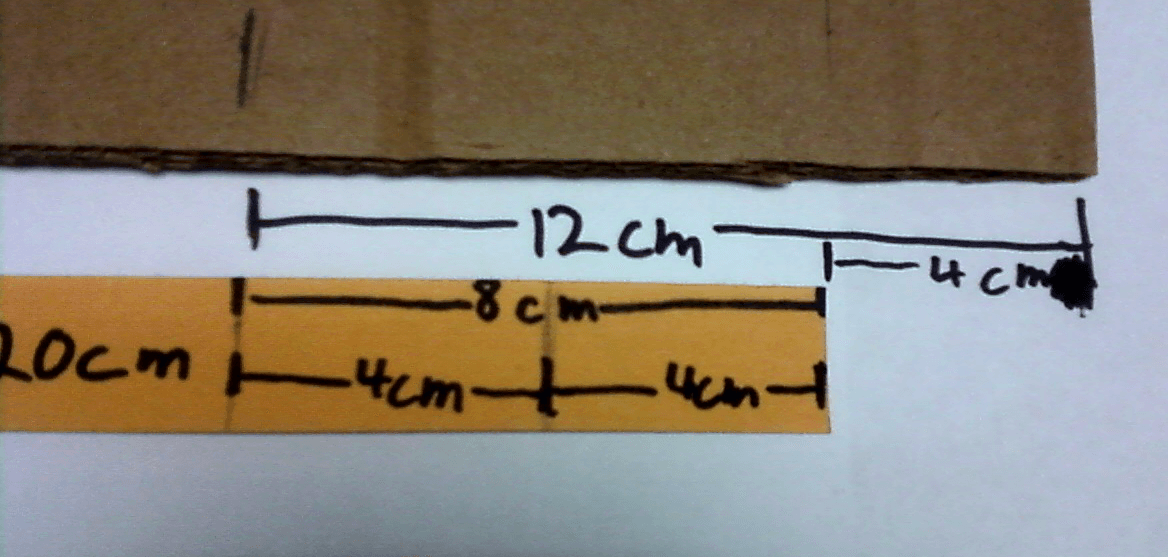 12cm
4cm
8cm
20cm 4cm 4cm